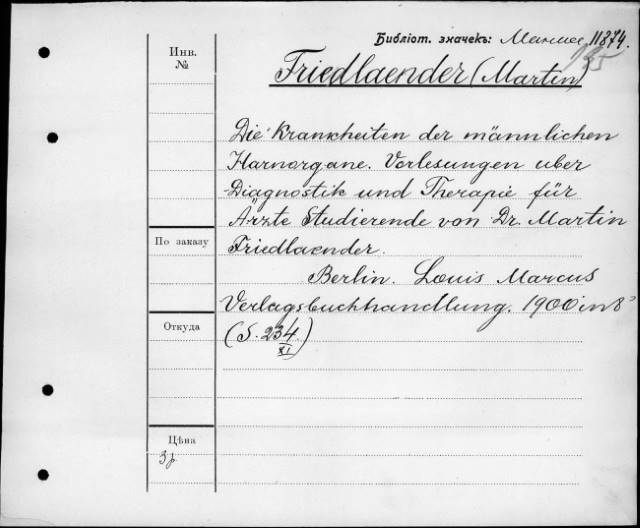 Библіот. значекъ: 11874.
Инв.
№
Friedlaender (Martin)
Die Krankheiten der männlichen
Harnorgane. Vorlesungen uber
Diagnostik und Therapie für
Ärzte Studierende von Dr. Martin
По заказу
Friedlaender.
Berlin. Louis Marcus
Verlagsbuchhandlung. 1900 in 8°
Откуда
(S. 234.)
XI
Цѣна
3р